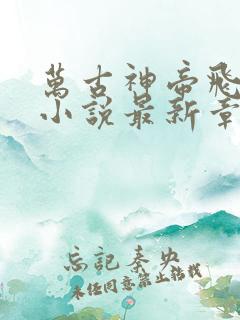 萬古神帝飛
小説最新章
忘記秦央
未經同意禁止轉載